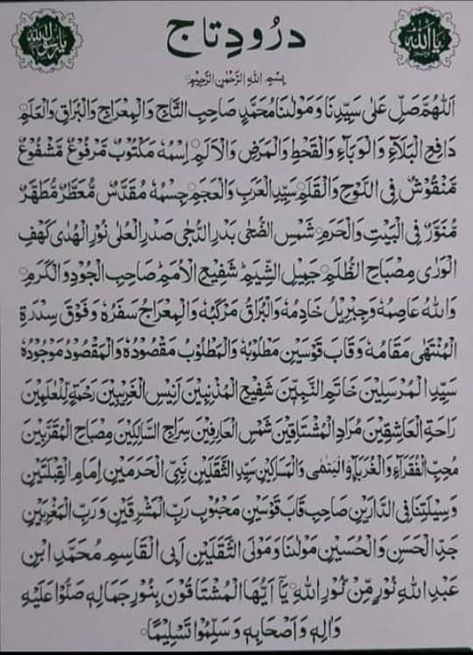 درُودِ تاج
یا اللہ
یا رسول اللہ
بِسْمِ اللهِ الرَّحْمٰنِ الرَّحِيْمِ
اَللّٰهُمَّ صَلِّ عَلٰی سَيِّدِنَا وَمَوْلٰنَا مُحَمَّدٍ صَاحِبِ التَّاجِ وَالْمِعْرَاجِ وَالْبُرَاقِ وَالْعَلَمِ
دَافِعِ الْبَلَآءِ وَالْوَبَآءِ وَالْقَحْطِ وَالْمَرَضِ وَالْاَلَمِ اِسْمُهٗ مَكْتُوْبٌ مَّرْفُوْعٌ مَّشْفُوْعٌ
مَّنْقُوْشٌ فِی اللَّوْحِ وَالْقَلَمِ سَيِّدِ الْعَرَبِ وَالْعَجَمِ جِسْمُهٗ مُقَدَّسٌ مُّعَطَّرٌ مُّطَهَّرٌ
مُّنَوَّرٌ فِی الْبَيْتِ وَالْحَرَمِ شَمْسِ الضُّحٰی بَدْرِ الدُّجٰی صَدْرِ الْعُلٰی نُوْرِ الْهُدٰی كَهْفِ
الْوَرٰی مِصْبَاحِ الظُّلَمِ جَمِيْلِ الشِّيَمِ شَفِيْعِ الْاُمَمِ صَاحِبِ الْجُوْدِ وَالْكَرَمِ
وَاللهُ عَاصِمُهٗ وَجِبْرِيْلُ خَادِمُهٗ وَالْبُرَاقُ مَرْكَبُهٗ وَالْمِعْرَاجُ سَفَرُهٗ وَ فَوْقَ سِدْرَةِ
الْمُنْتَهٰی مَقَامُهٗ وَ قَابَ قَوْسَيْنِ مَطْلُوْبُهٗ وَالْمَطْلُوْبُ مَقْصُوْدُهٗ وَالْمَقْصُوْدُ مَوْجُوْدُهٗ
سَيِّدِ الْمُرْسَلِيْنَ خَاتَمِ النَّبِيّٖنَ شَفِيْعِ الْمُذْنِبِيْنَ اَنِيْسِ الْغَرِيْبِيْنَ رَحْمَةٍ لِّلْعٰلَمِيْنَ
رَاحَةِ الْعَاشِقِيْنَ مُرَادِ الْمُشْتَاقِيْنَ شَمْسِ الْعَارِفِيْنَ سِرَاجِ السَّالِكِيْنَ مِصْبَاحِ الْمُقَرَّبِيْنَ
مُحِبِّ الْفُقَرَآءِ وَالْغُرَبَآءِ وَالْيَتٰمٰی وَالْمَسَاكِيْنِ سَيِّدِ الثَّقَلَيْنِ نَبِیِّ الْحَرَمَيْنِ اِمَامِ الْقِبْلَتَيْنِ
وَسِيْلَتِنَا فِی الدَّارَيْنِ صَاحِبِ قَابَ قَوْسَيْنِ مَحْبُوْبِ رَبِّ الْمَشْرِقَيْنِ وَ رَبِّ الْمَغْرِبَيْنِ
جَدِّ الْحَسَنِ وَالْحُسَيْنِ مَوْلٰنَا وَمَوْلَی الثَّقَلَيْنِ اَبِی الْقَاسِمِ مُحَمَّدِ ابْنِ
عَبْدِ اللهِ نُوْرٍ مِّنْ نُّوْرِ اللهِ يٰۤا اَيُّهَا الْمُشْتَاقُوْنَ بِنُوْرِ جَمَالِهٖ صَلُّوْا عَلَيْهِ
وَاٰلِهٖ وَ اَصْحَابِهٖ وَسَلِّمُوْا تَسْلِيْمًا